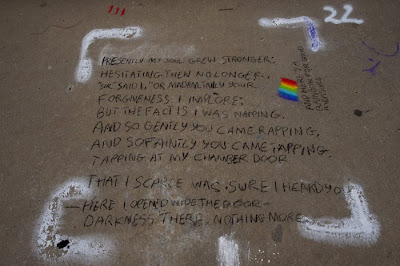 22
PRESENTLY MY SOUL GREW STRONGER;
HESITATING THEN NO LONGER,
"SIR" SAID I, "OR MADAM, TRULY YOUR
FORGIVENESS I IMPLORE;
BUT THE FACT IS I WAS NAPPING,
AND SO GENTLY YOU CAME RAPPING,
AND SO FAINTLY YOU CAME TAPPING,
TAPPING AT MY CHAMBER DOOR
THAT I SCARCE WAS SURE I HEARD YOU
— HERE I OPENED WIDE THE DOOR —
DARKNESS THERE, NOTHING MORE.
AND HERE IS A
RAINBOW FOR GOOD